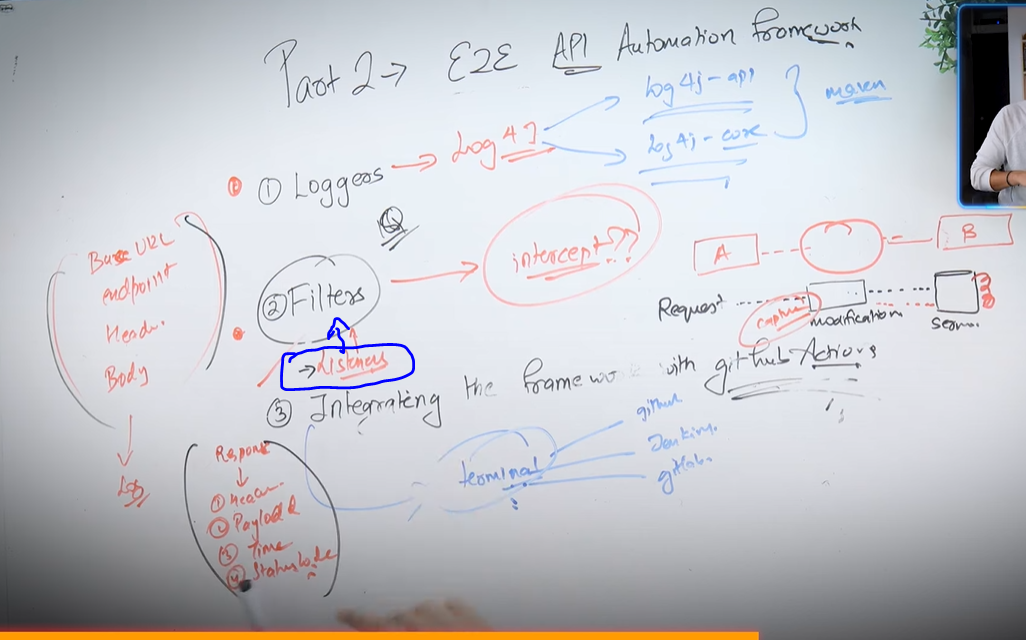 Part 2 → E2E API Automation framework
① Loggers → Log4J
log4j-api
log4j-core
maven
Q
② Filters → intercept??
→ Listeners
A
B
Request
capture
modification
Base URL
endpoint
Header.
Body
Log
③ Integrating the framework with github Actions
terminal
github
Jenkins.
gitlab.
Response
① Header.
② Payload
③ Time
④ Status Code